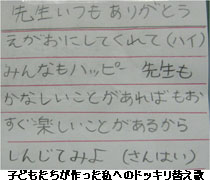 先生いつもありがとう
えがおにしてくれて(ハイ)
みんなもハッピー 先生も
かなしいことがあればもお
すぐ楽しいことがあるから
しんじてみよ (さんはい)
子どもたちが作った私へのドッキリ替え歌